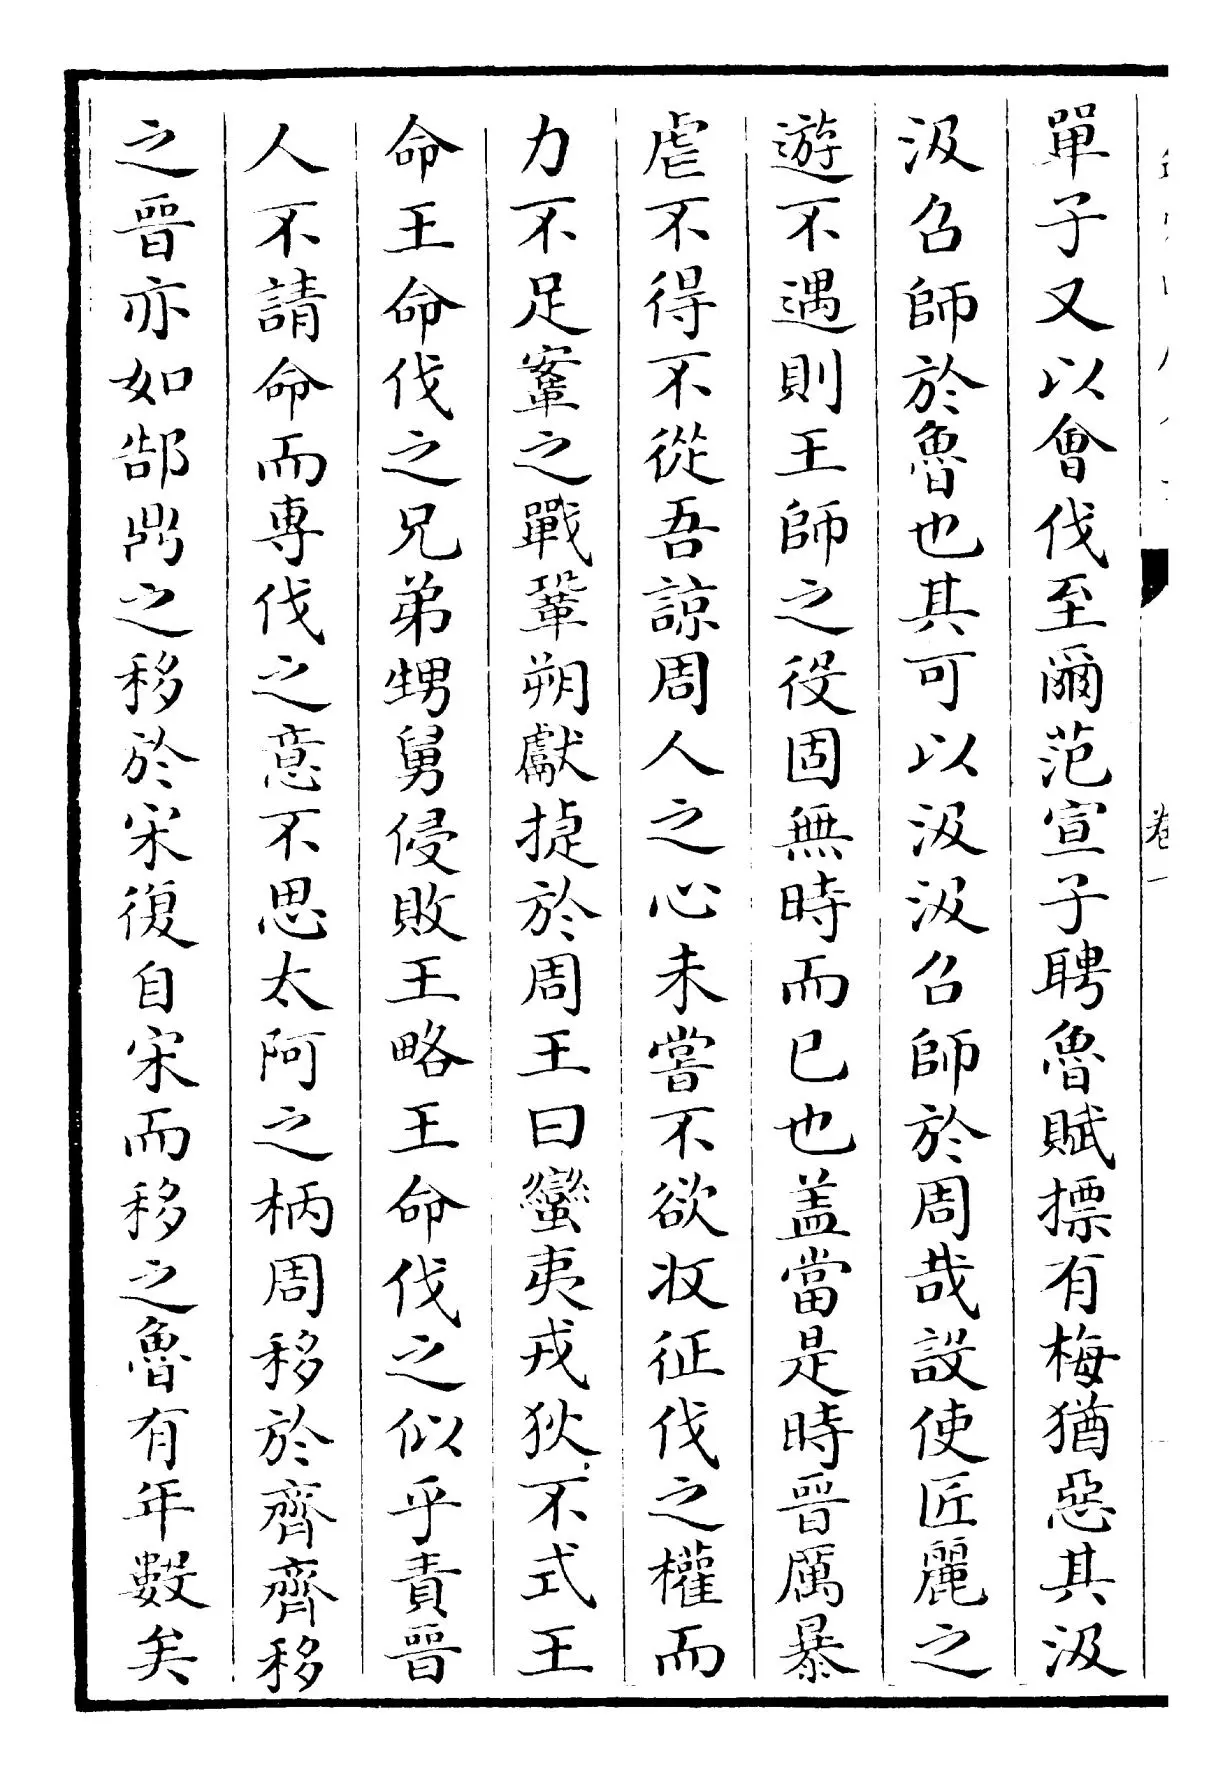 單子又以會伐至爾范宣子聘魯賦摽有梅猶惡其汲
汲召師於魯也其可以汲汲召師於周哉設使匠麗之
遊不遇則王師之役固無時而已也盖當是時晉厲暴
虐不得不從吾諒周人之心未嘗不欲收征伐之權而
力不足鞌之戰鞏朔獻捷於周王曰蠻夷戎狄不式王
命王命伐之兄弟甥舅侵敗王略王命伐之似乎責晉
人不請命而專伐之意不思太阿之柄周移於齊齊移
之晉亦如郜鼎之移於宋復自宋而移之魯有年數矣
卷一